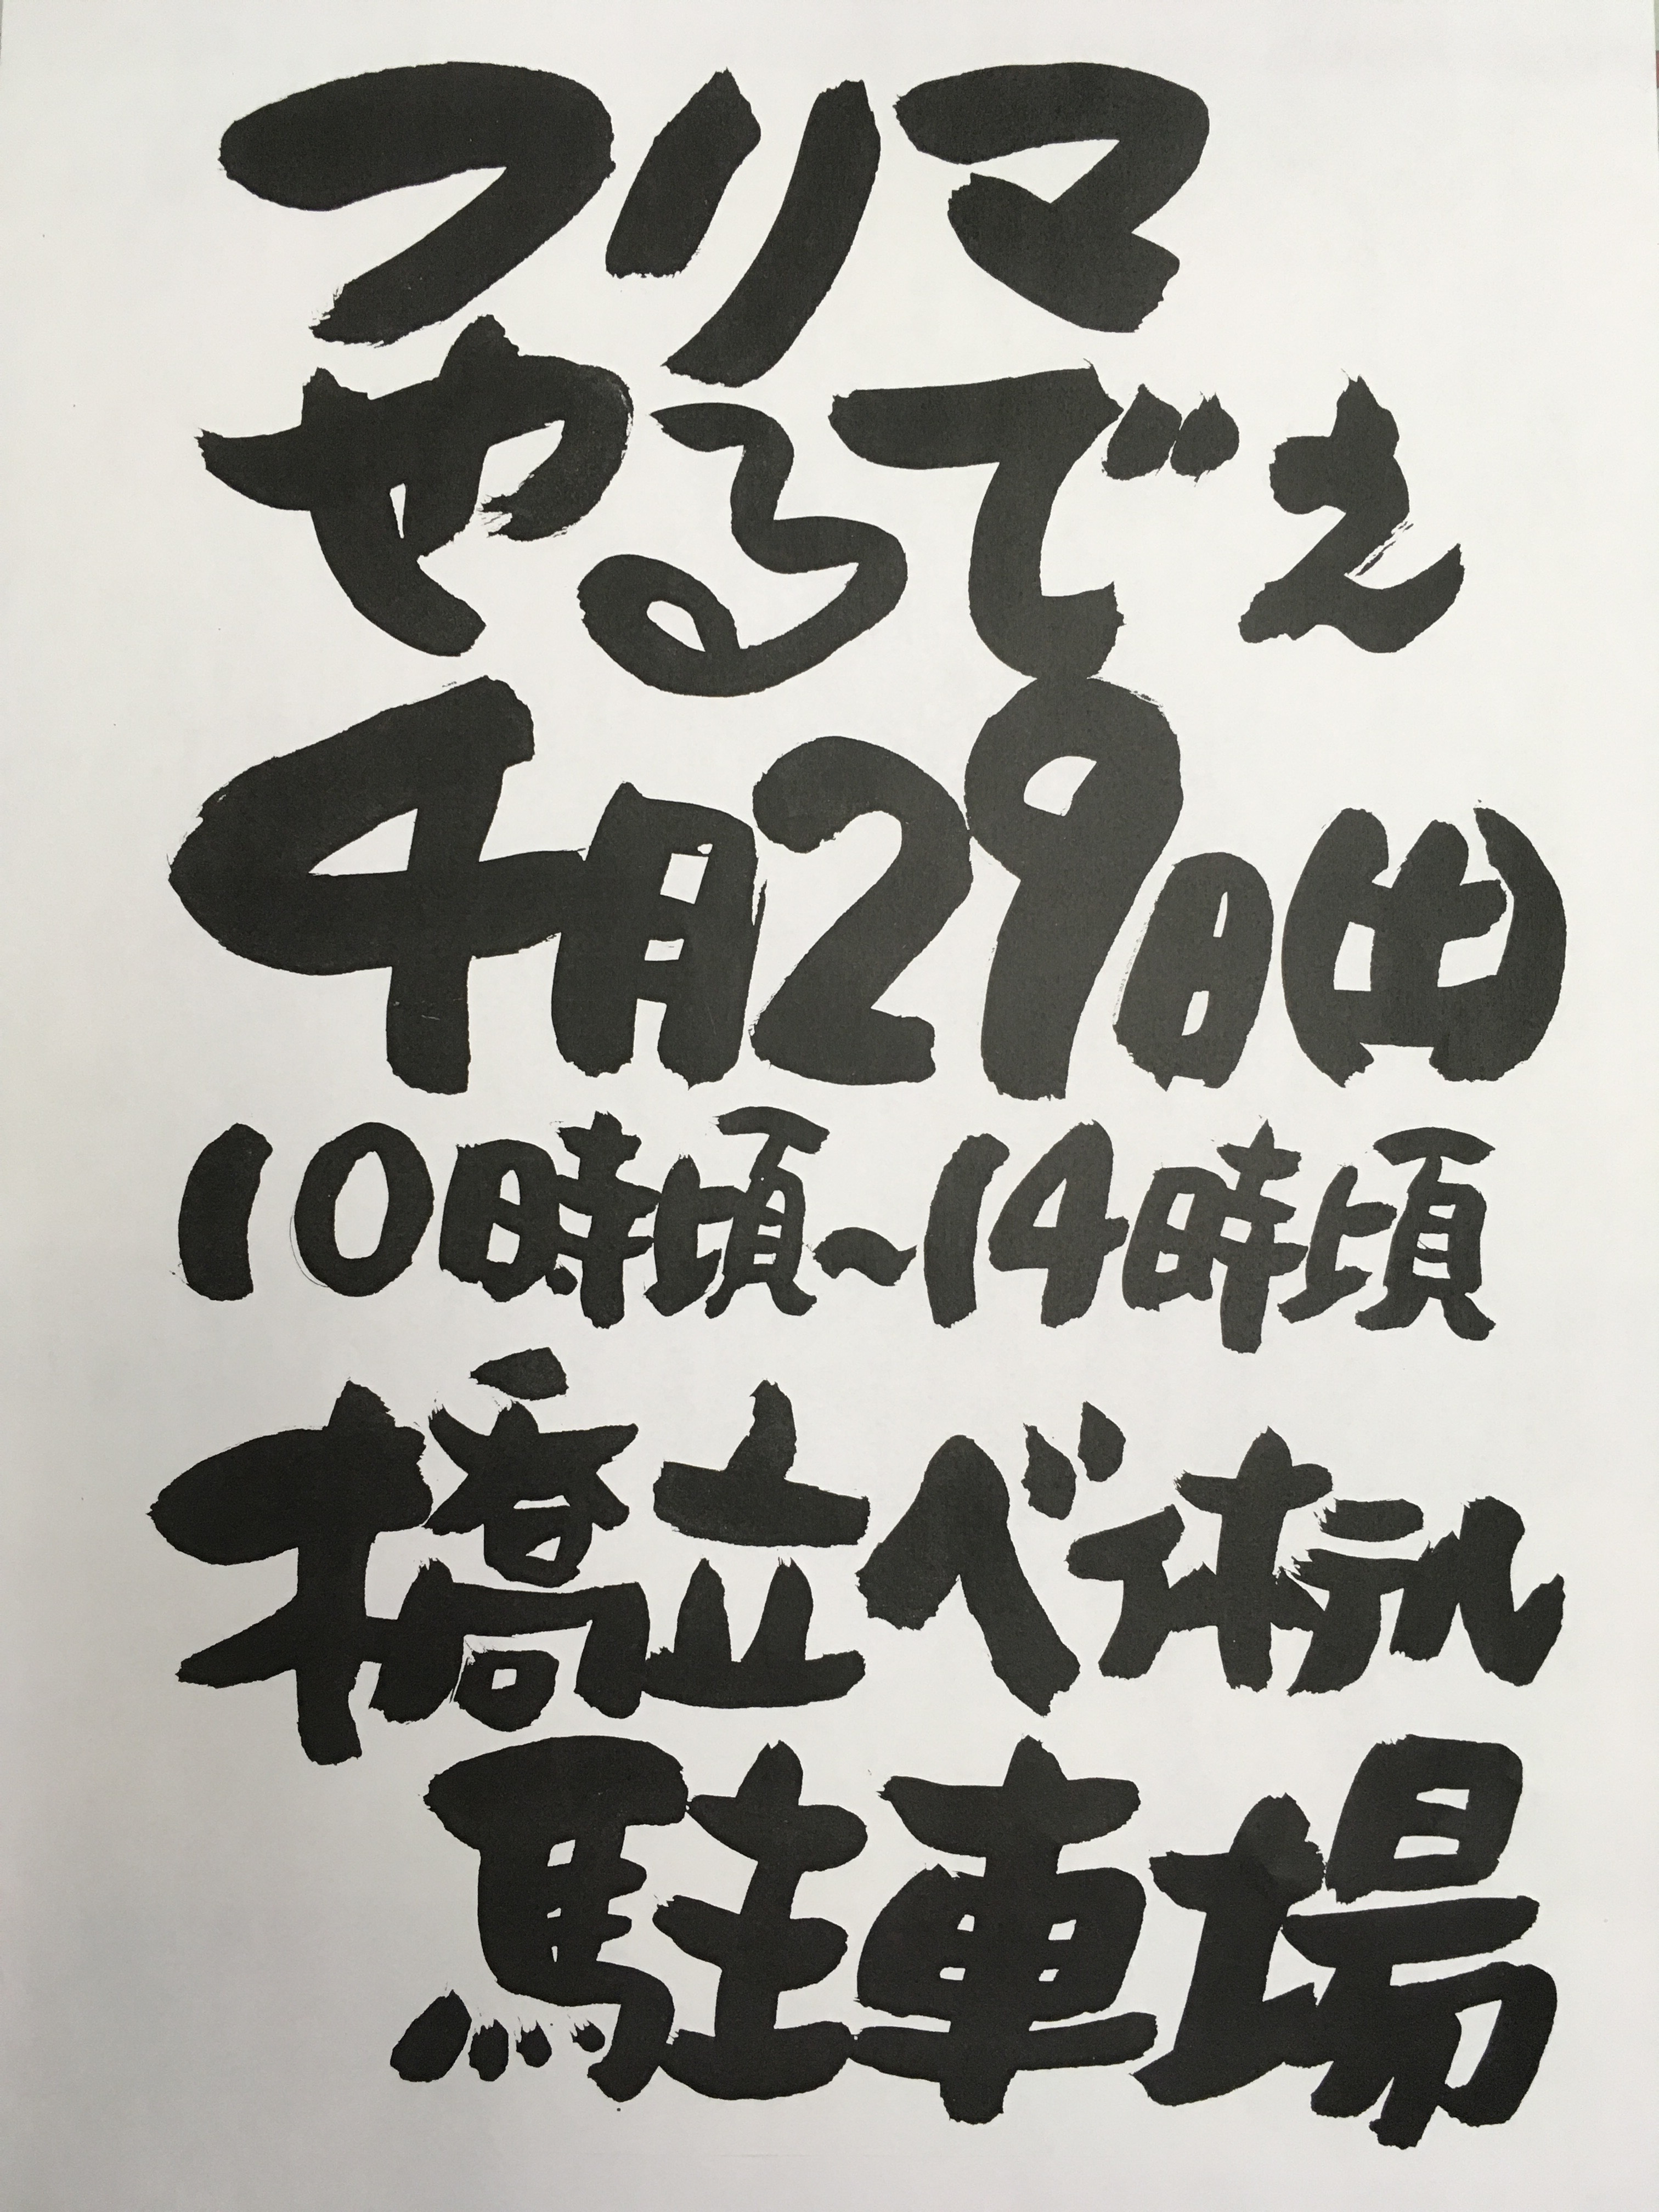 フリマ
やるでぇ
4月29日(土)
10時頃~14時頃
橋立ベイホテル
駐車場